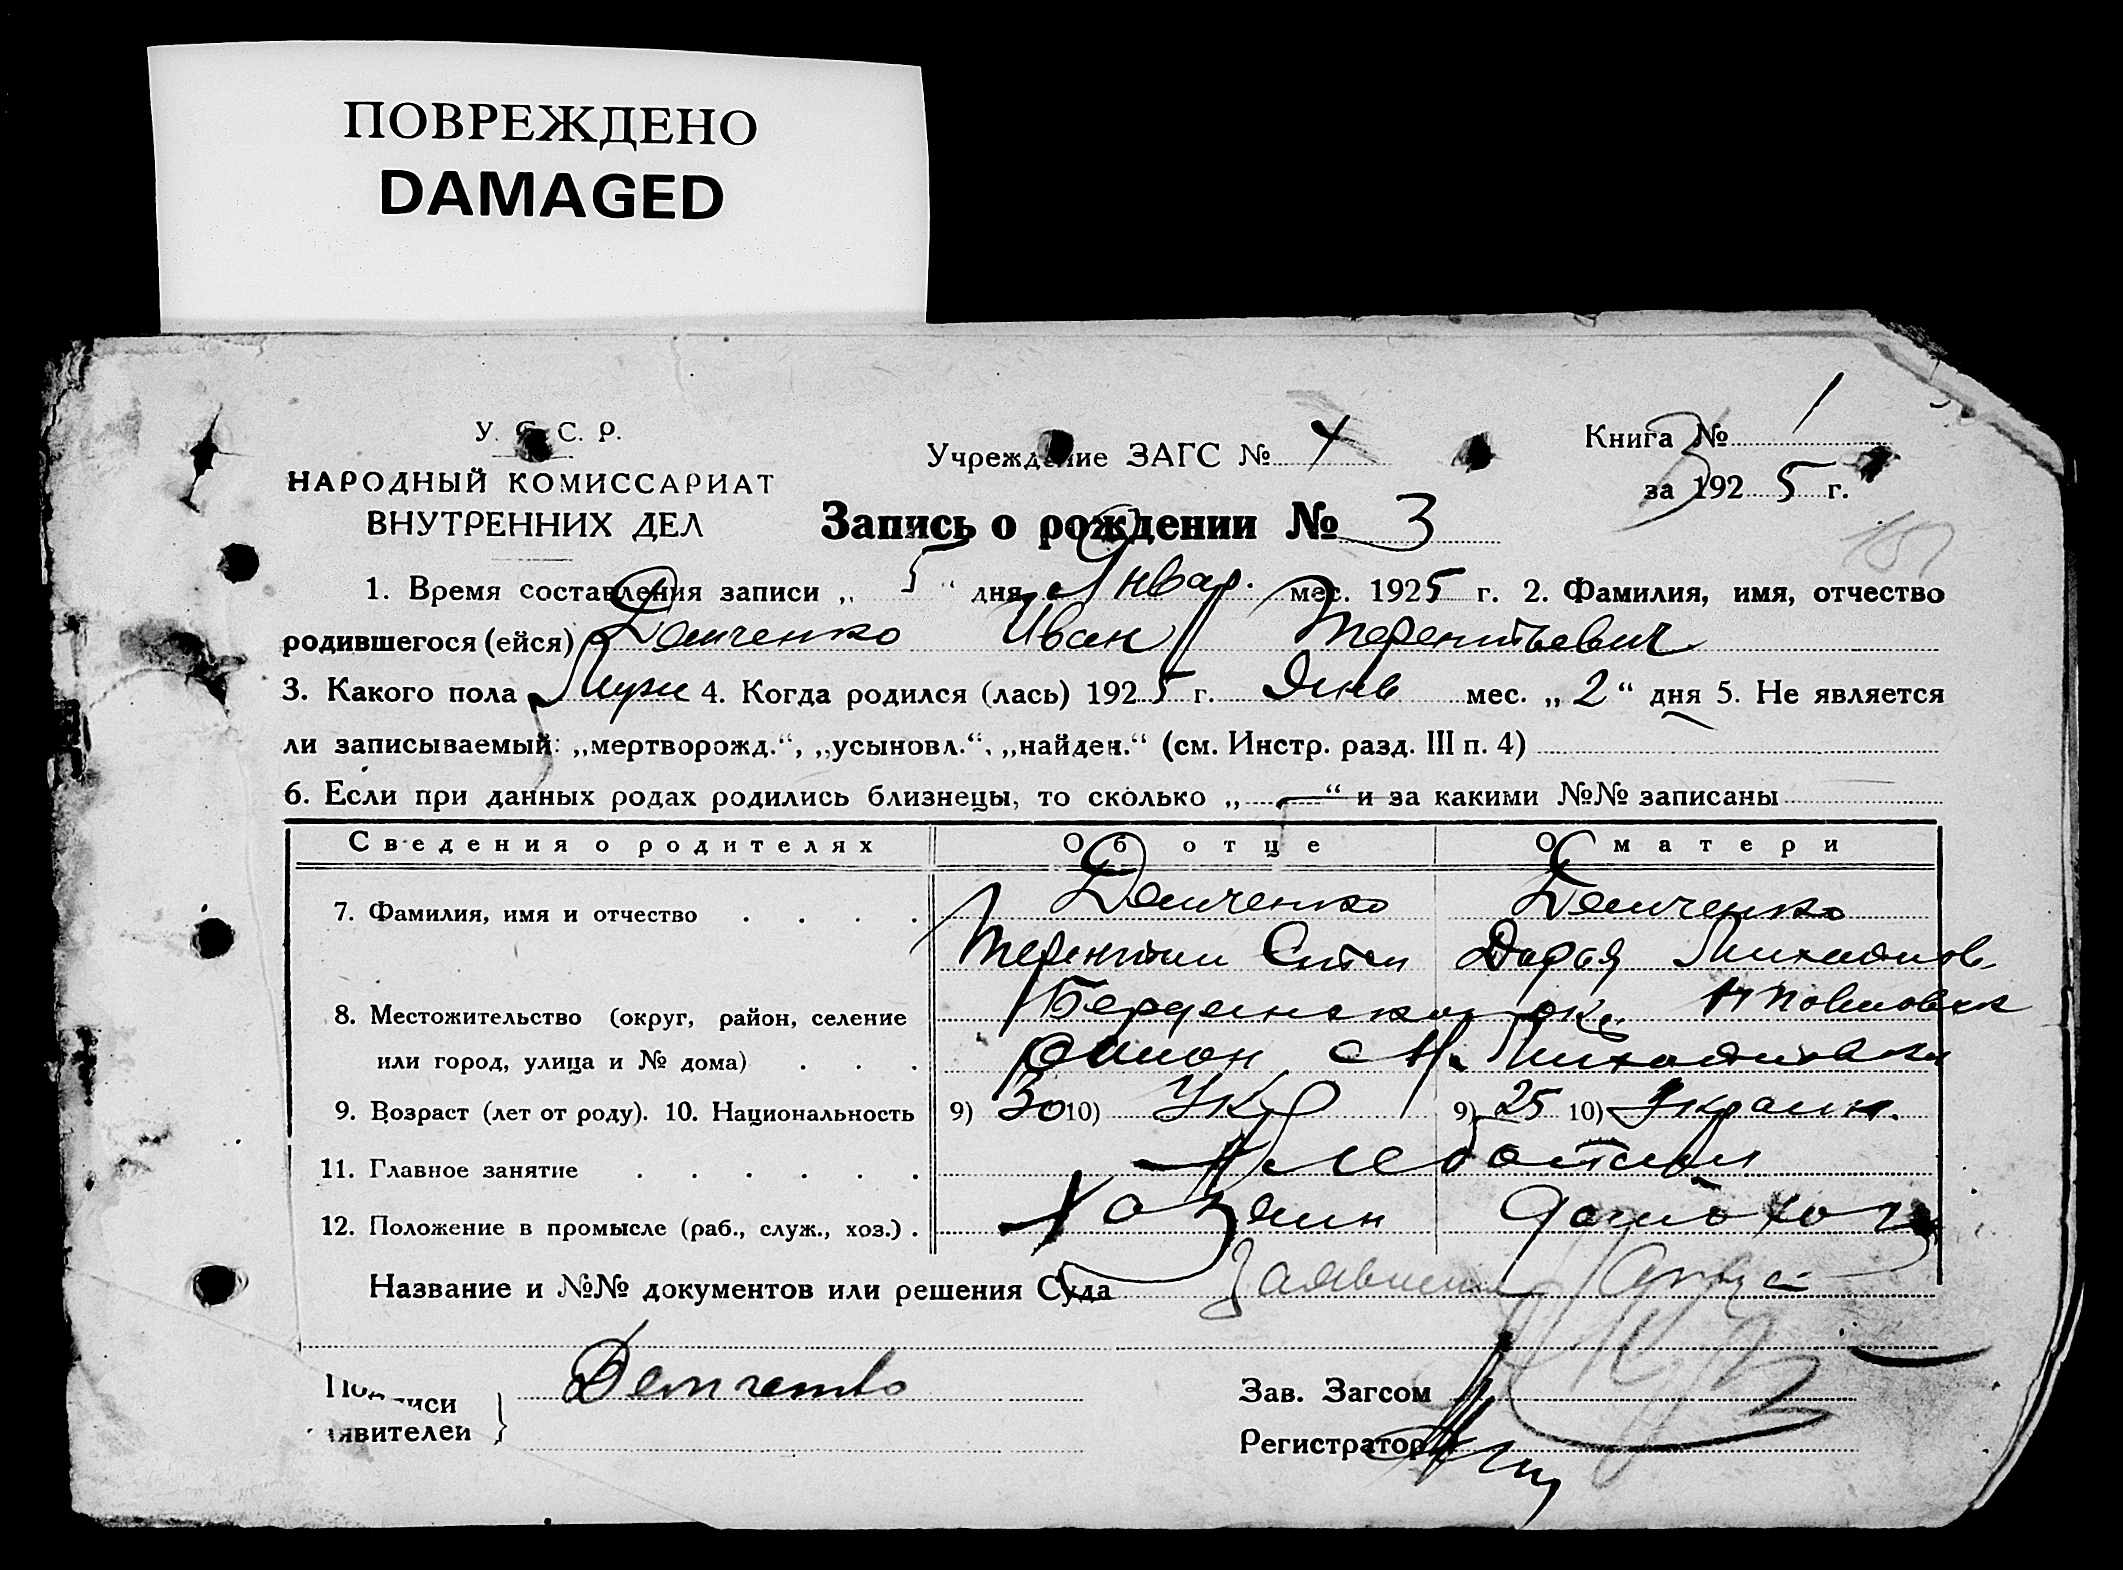 ПОВРЕЖДЕНО
DAMAGED
У. С. С. Р.
НАРОДНЫЙ КОМИССАРИАТ
ВНУТРЕННИХ ДЕЛ
Учреждение ЗАГС №
Книга № 1
за 1925 г.
Запись о рождении № 3
1. Время составления записи „ 5 “ дня Январ. мес. 1925 г. 2. Фамилия, имя, отчество
родившегося (ейся) Демченко Иван Терентьевич
3. Какого пола Муж 4. Когда родился (лась) 1925 г. Янв мес. „ 2 “ дня 5. Не является
ли записываемый: „мертворожд.“, „усыновл.“, „найден.“ (см. Инстр. разд. III п. 4)
6. Если при данных родах родились близнецы, то сколько „ — “ и за какими №№ записаны
Сведения о родителях Об отце О матери
7. Фамилия, имя и отчество Демченко Демченко
Терентий Степ Дарья Михайлов.
8. Местожительство (округ, район, селение
или город, улица и № дома) район с. Михайловка
9. Возраст (лет от роду). 10. Национальность 9) 30 10) Укр 9) 25 10) Украин.
11. Главное занятие Хлебопаш
12. Положение в промысле (раб., служ., хоз.) Хозяин
Название и №№ документов или решения Суда Заявление отца
Подписи
явителей } Демченко
Зав. Загсом
Регистратор